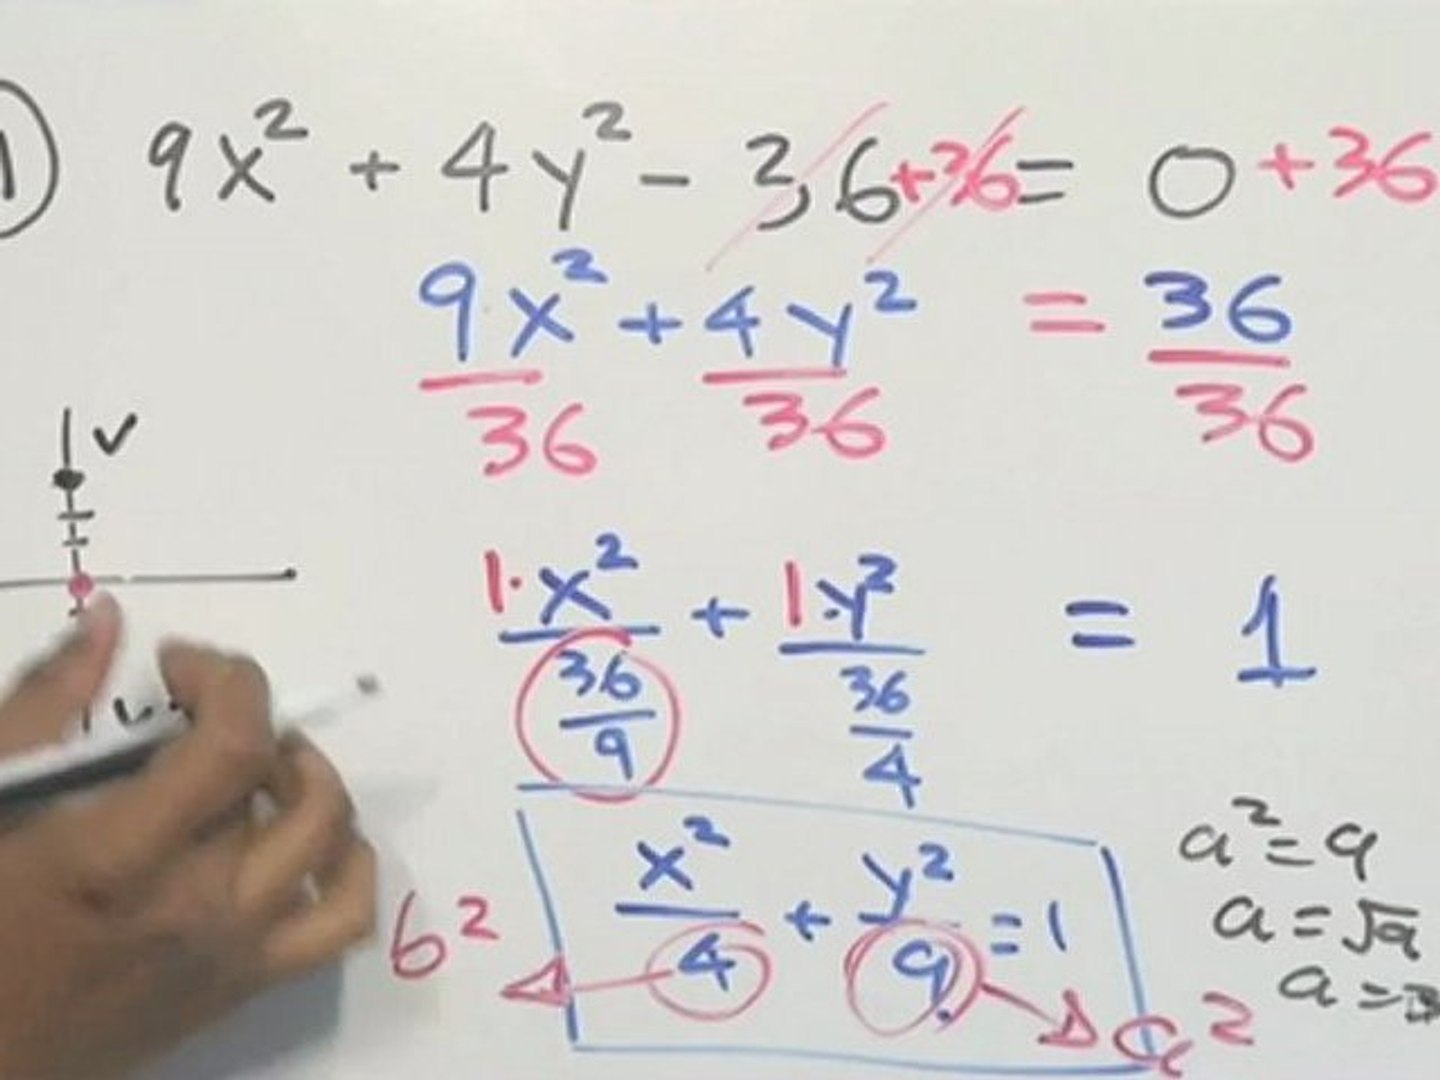 1) 9x² + 4y² - 36 + 36 = 0 + 36
9x²/36 + 4y²/36 = 36/36
V
1·x²/(36/9) + 1·y²/(36/4) = 1
x²/4 + y²/9 = 1
b²
a²
a² = 9
a = √9
a = 3